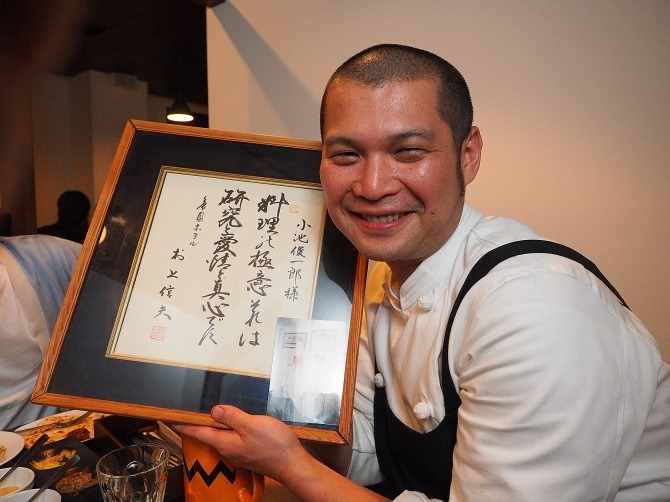 小池俊一郎様
料理の極意それは
研究と愛情と真心です
帝国ホテル
村上信夫